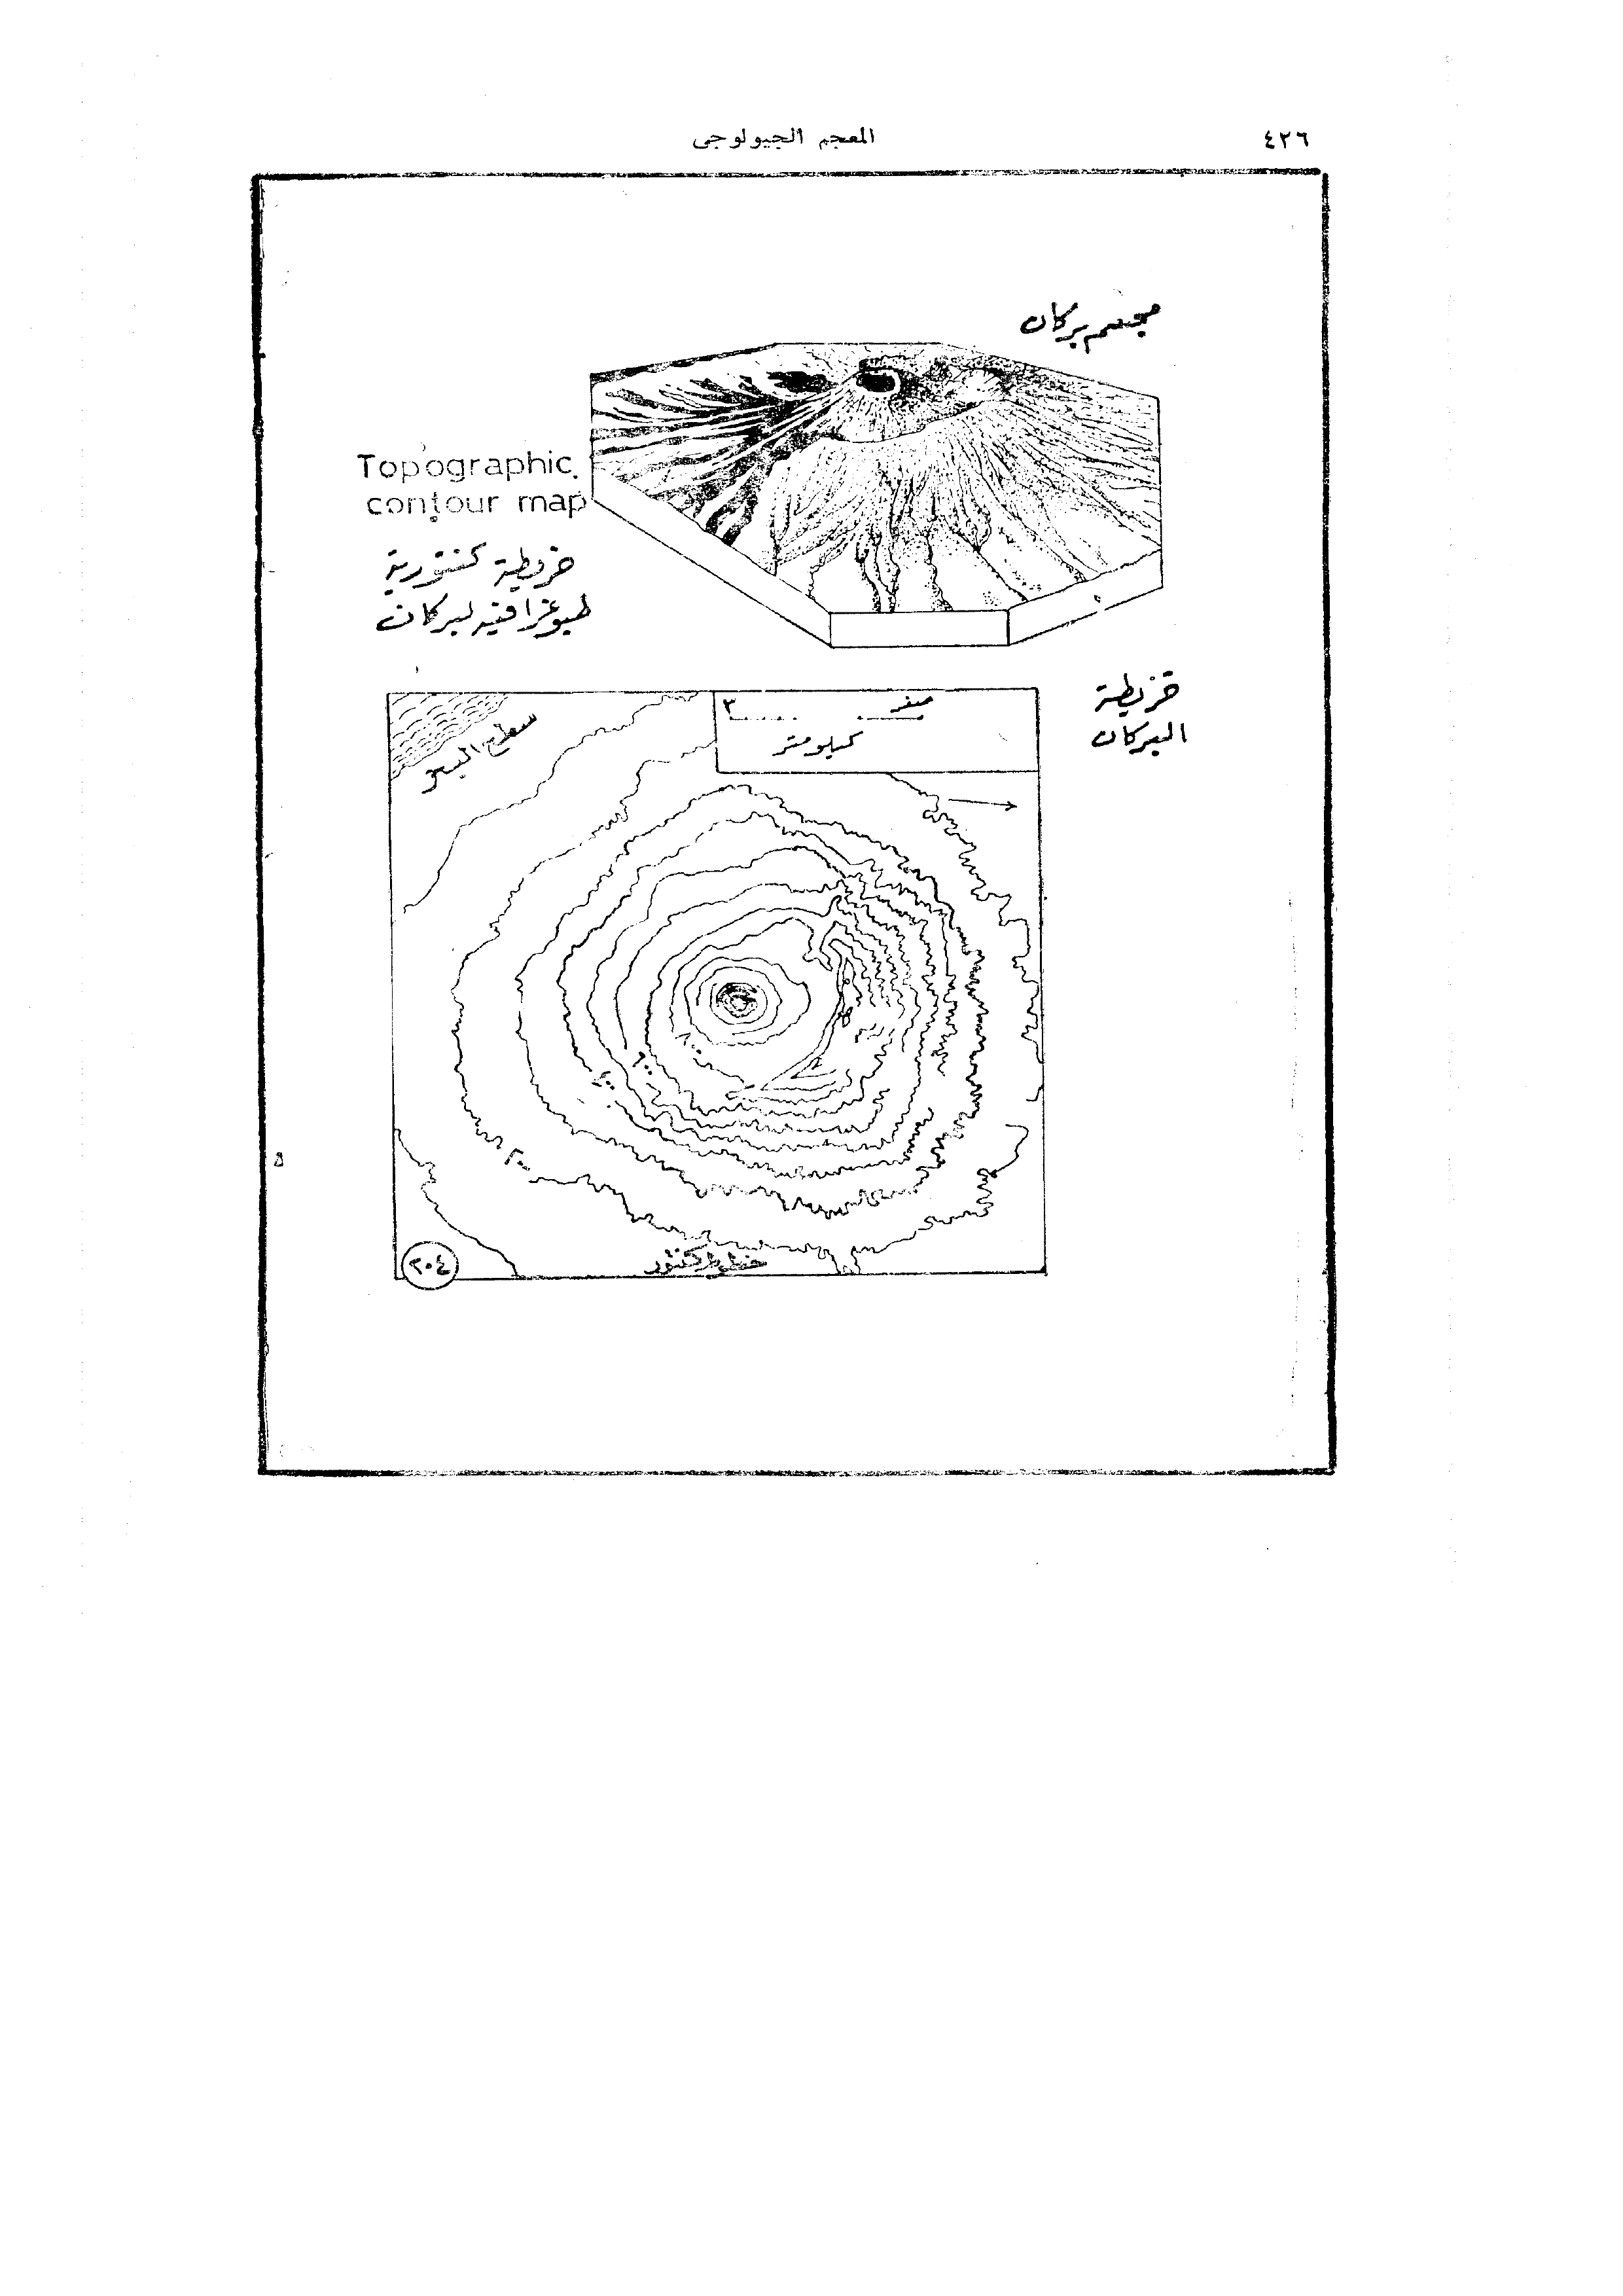 ٤٢٦
المعجم الجيولوجى
مجسم بركان
Topographic
contour map
خريطة كنتورية
طبوغرافية لبركان
خريطة
البركان
صفر
٣
كيلومتر
سطح البحر
٢٠٠
٤٠٠
٦٠٠
خطوط كنتور
٢٠٤